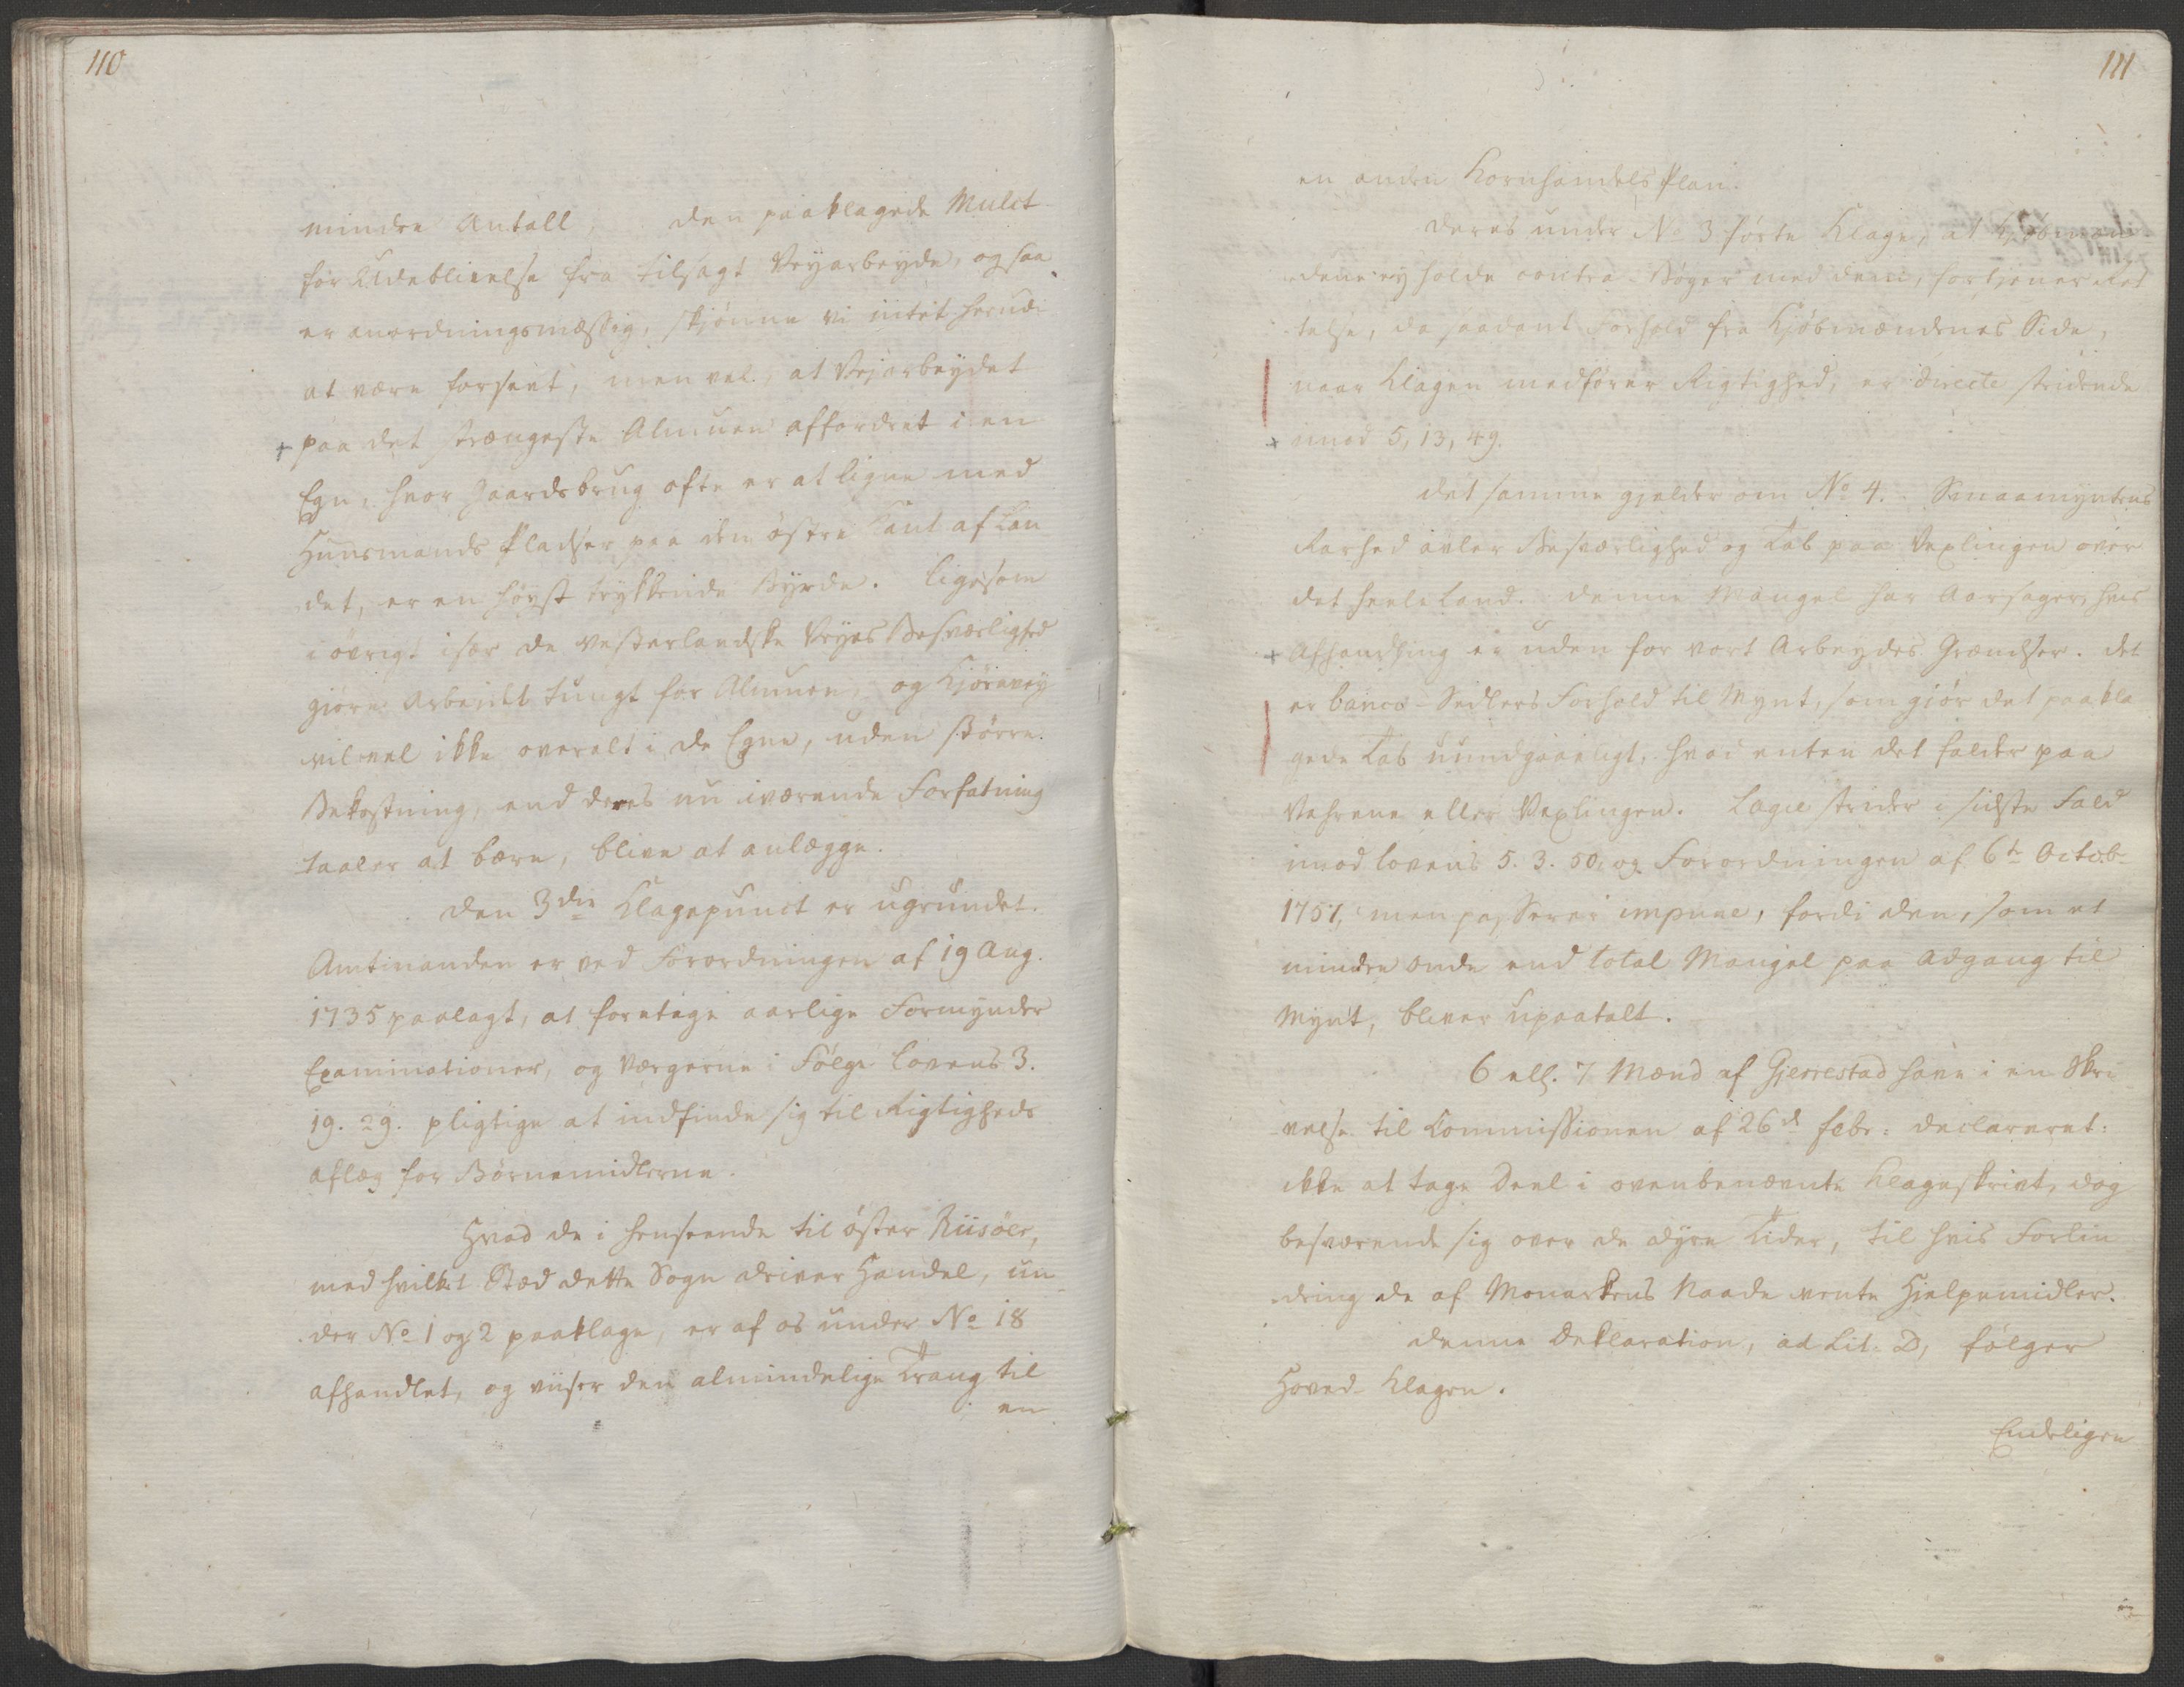 110
mindre Antall, den paaklagede Mulct
for Udeblivelse fra tilsagt Veyarbeyde, ogsaa
er anordningsmæssig, skjønne vi intet herudi
at være forseet, men vel, at Vejarbeydet
+ paa det strængeste Almuen affordret i en
Egn, hvor Gaardsbrug ofte er at ligne med
Huusmands Pladser paa den østre Kant af Lan
det, er en høyst trykkende Byrde. Ligesom
i øvrigt især de vesterlandske Veyes Besværlighed
giøre Arbeydet tungt for Almuen, og Kjørevey
vil vel ikke overalt i de Egne, uden større
Bekostning, end deres nu værende Forfatning
taaler at bære, blive at anlægge.
Den 3die Klagepunct er ugrundet.
Amtmanden er ved Forordningen af 19 Aug.
1735 paalagt, at foretage aarlige Formynder
Examinationer, og Værgerne i Følge Lovens 3.
19. 29. pligtige at indfinde sig til Rigtigheds
aflæg for Børnemidlerne.
Hvad de i Henseende til Øster Riisöer,
med hvilket Stæd dette Sogn driver Handel, un
der No 1 og 2 paaklage, er af os under No 18
afhandlet, og viiser den almindelige Trang til
en
111
en anden Kornhandels Plan.
Deres under No 3 førte Klage, at Kjøbmæn
dene ey holde contra-Bøger med dem, fortjener Ret
telse, da saadant Forhold fra Kjøbmændenes Side,
naar Klagen medfører Rigtighed, er directe stridende
+ imod 5, 13, 49.
Det samme gjelder om No 4. Smaamyntens
Rarhed avler Besværlighed og Tab paa Vexlingen over
det heele Land. Denne Mangel har Aarsager, hvis
+ Afhandling er uden for vort Arbeydes Grændser. Det
er banco-Sedlers Forhold til Mynt, som gjør det paakla
gede Tab uundgaaeligt, hvad enten det falder paa
Vahrene eller Vexlingen. Lagie strider i sidste Fald
imod Lovens 5. 3. 50. og Forordningen af 6te Octob.
1757, men passerer impune, fordi den, som et
mindre Onde end total Mangel paa Adgang til
Mynt, bliver upaatalt.
6 ell. 7 Mænd af Gjerrestad have i en Skri
velse til Commissionen af 26de Febr: declareret:
ikke at tage Deel i ovenbenævnte Klageskrivt, dog
besværende sig over de dyre Tider, til hvis Forlin
dring de af Monarkens Naade vente Hjelpemidler.
Denne Deklaration, ad Lit. D, følger
Hoved-Klagen.
Endeligen